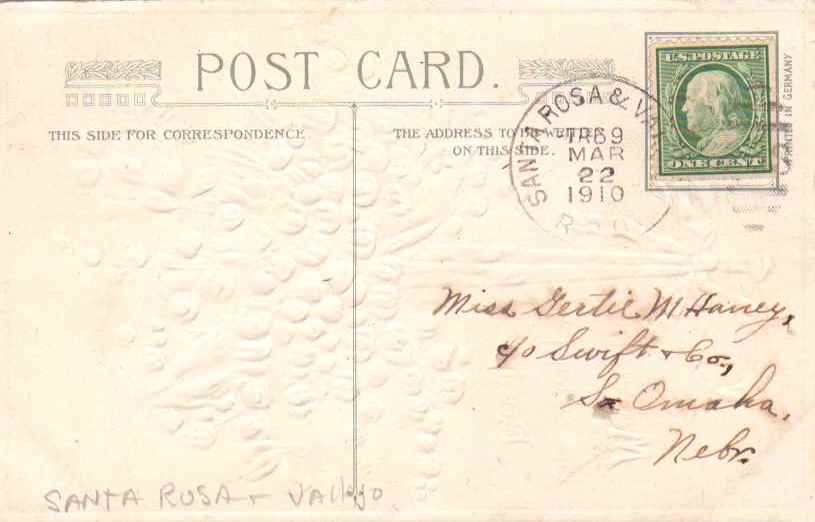 POST CARD.
THIS SIDE FOR CORRESPONDENCE.
THE ADDRESS TO BE WRITTEN
ON THIS SIDE.
U.S. POSTAGE
ONE CENT
PRINTED IN GERMANY
SANTA ROSA & VAL
TR 69
MAR
22
1910
R
Miss Gertie M Haney,
c/o Swift & Co.,
So Omaha,
Nebr.
SANTA ROSA + Vallejo